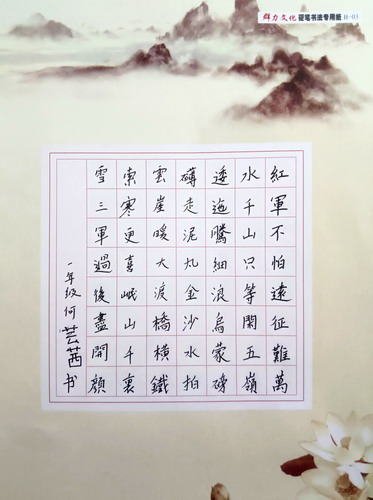 群力文化 硬笔书法专用纸 H-03
紅軍不怕遠征難萬
水千山只等閑五嶺
逶迤騰細浪烏蒙磅
礴走泥丸金沙水拍
雲崖暖大渡橋橫鐵
索寒更喜岷山千裏
雪三軍過後盡開顏
一年級何芸茜书